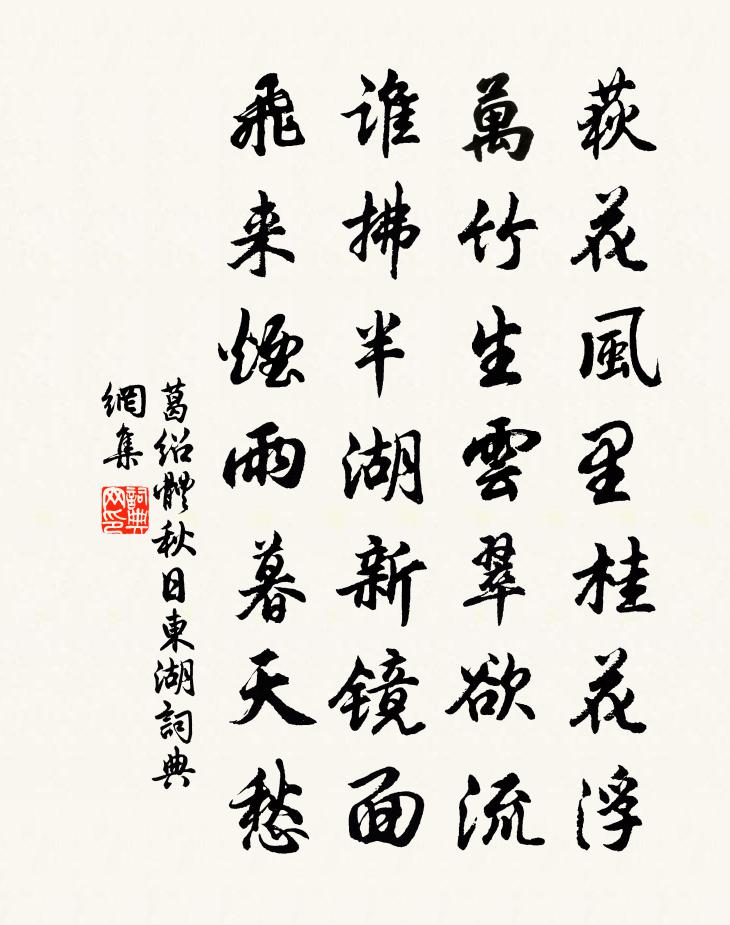 萩花風里桂花浮
萬竹生雲翠欲流
誰拂半湖新镜面
飛来煙雨暮天愁
葛绍體秋日東湖詞典
網集
詞典
网印